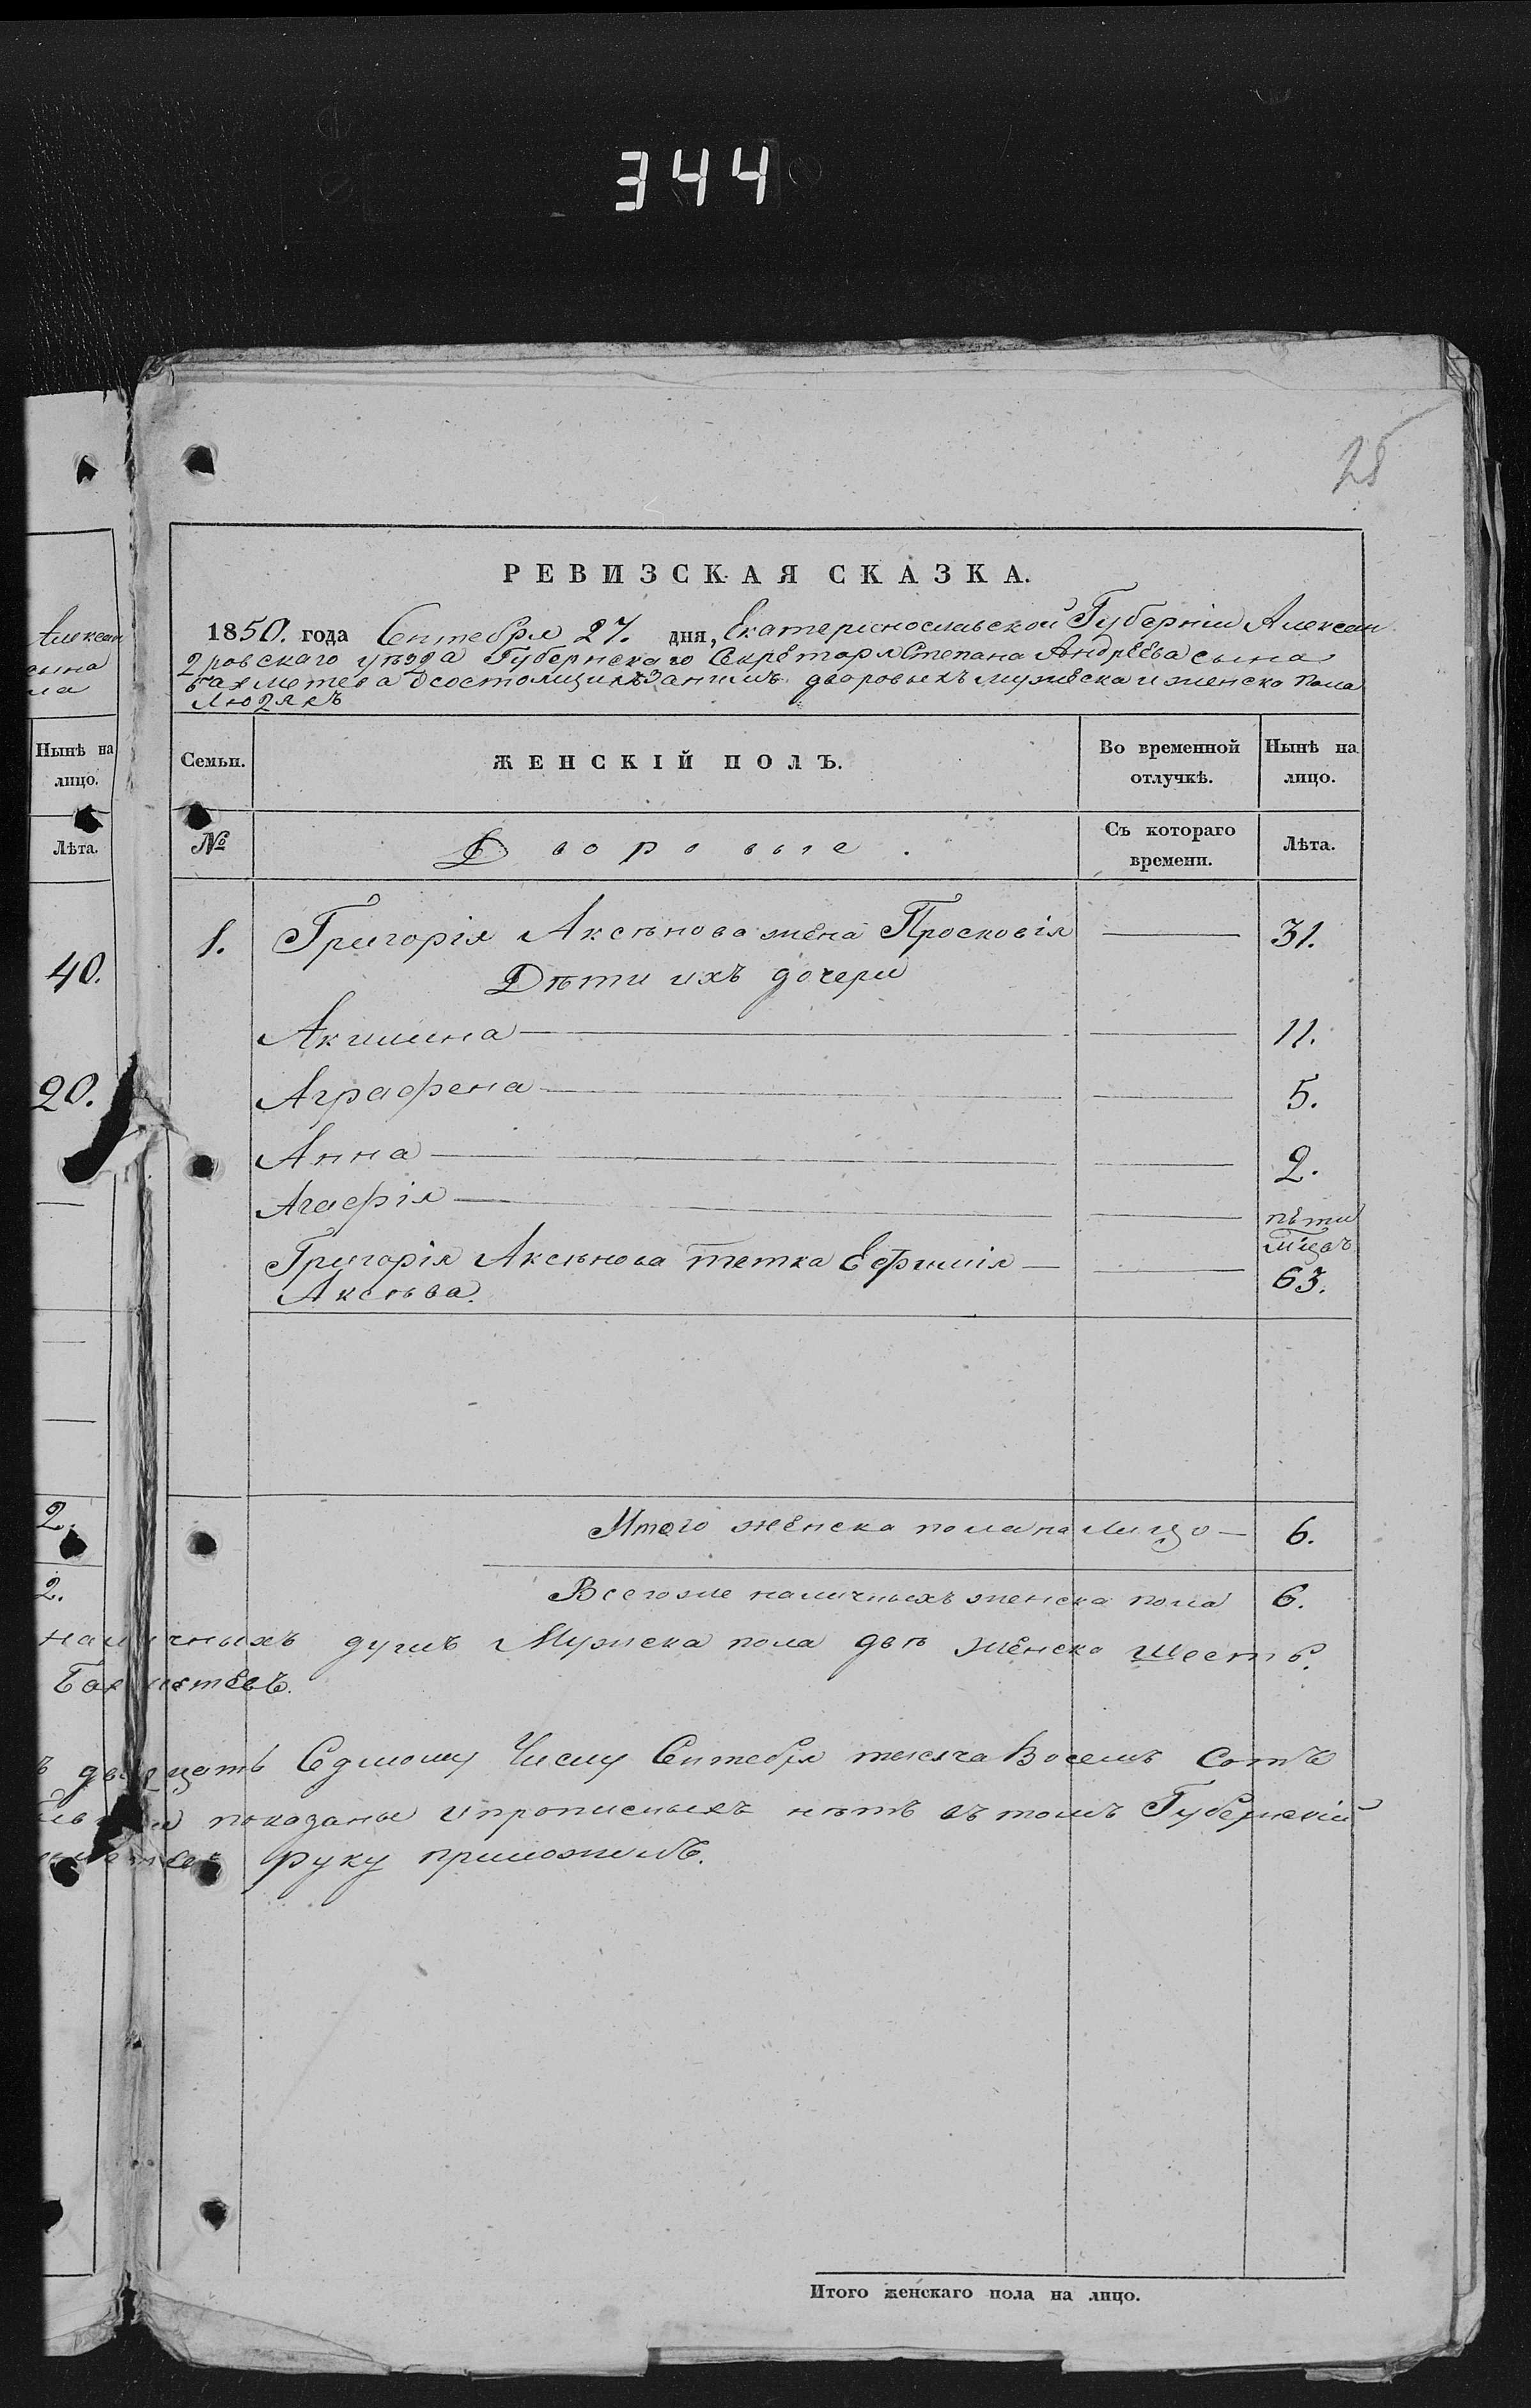 344
25
РЕВИЗСКАЯ СКАЗКА.
1850. года Сентября 27. дня, Екатеринославской Губерніи Алексан
дровскаго уѣзда Губернскаго Секретаря Степана Андреева сына
Бахметева о состоящихъ за нимъ дворовыхъ мужеска и женска пола
людяхъ
Алексан
сына
ла
Нынѣ на лицо.
Лѣта.
40.
20.
2.
2.
Семьи.
ЖЕНСКІЙ ПОЛЪ.
Во временной отлучкѣ.
Нынѣ на лицо.
№
Дворовые.
Съ котораго времени.
Лѣта.
1. Григорія Аксѣнова жена Просковія 31.
Дѣти ихъ дочери
Акилина 11.
Аграфена 5.
Анна 2.
Агафія пѣти мѣцовъ
Григорія Аксѣнова тетка Ефимія 63.
Аксѣва.
Итого женска пола на лицо 6.
Всего же наличныхъ женска пола 6.
наличныхъ душъ Мужеска пола двѣ женска шесть.
Бахметевъ.
ъ двадцать Седмому Числу Сентебря тысяча Восемъ Сотъ
показаны и прописныхъ нѣтъ въ томъ Губернскій
руку приложилъ.
Итого женскаго пола на лицо.